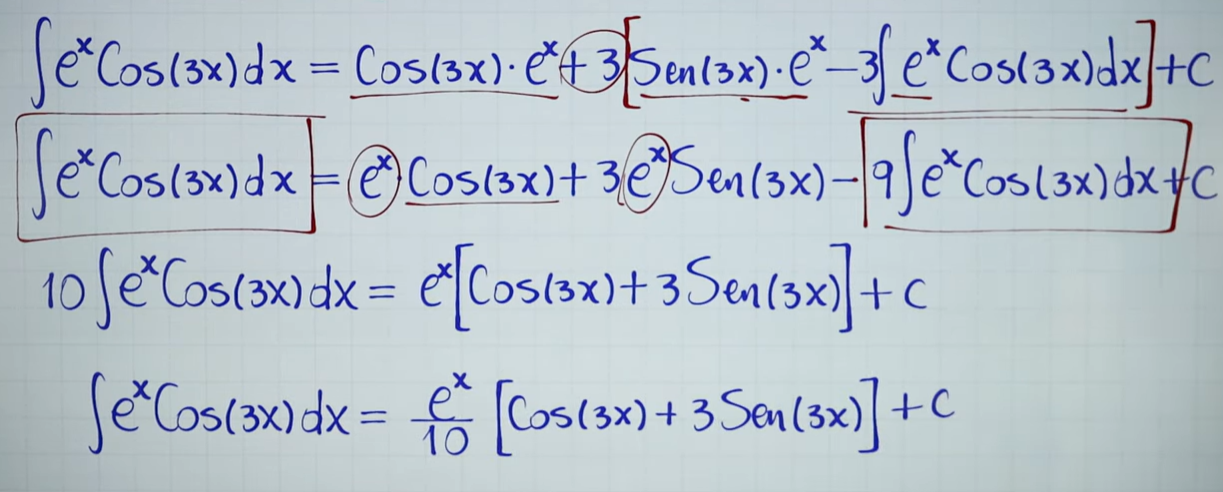 ∫eˣCos(3x)dx = Cos(3x)·eˣ+3[Sen(3x)·eˣ−3∫eˣCos(3x)dx]+C
∫eˣCos(3x)dx = eˣCos(3x)+3eˣSen(3x)−9∫eˣCos(3x)dx+C
10∫eˣCos(3x)dx = eˣ[Cos(3x)+3Sen(3x)]+C
∫eˣCos(3x)dx = eˣ/10 [Cos(3x)+3Sen(3x)]+C